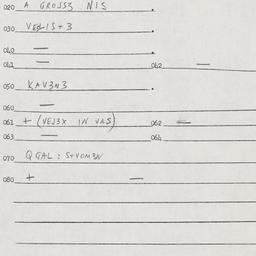 020 A GROSS3 NIS
030 VEL1S+3
040 —
041 — 042 —
050 KAV3N3
060 —
061 + (VEJ3X IN VAS) 062 —
063 — 064
070 QGAL: S+VOM3N
080 + —